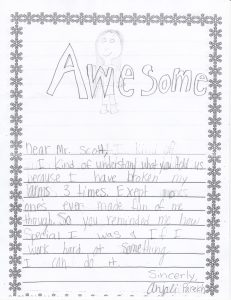 Awesome
Dear Mr. Scott, I kind of
I kind of understand what you told us
because I have broken my
arms 3 times. Exept
ones ever made fun of me
though. So you reminded me how
special I was & If I
work hard at something
I can do it.
Sincerly,
Anjali Parekh